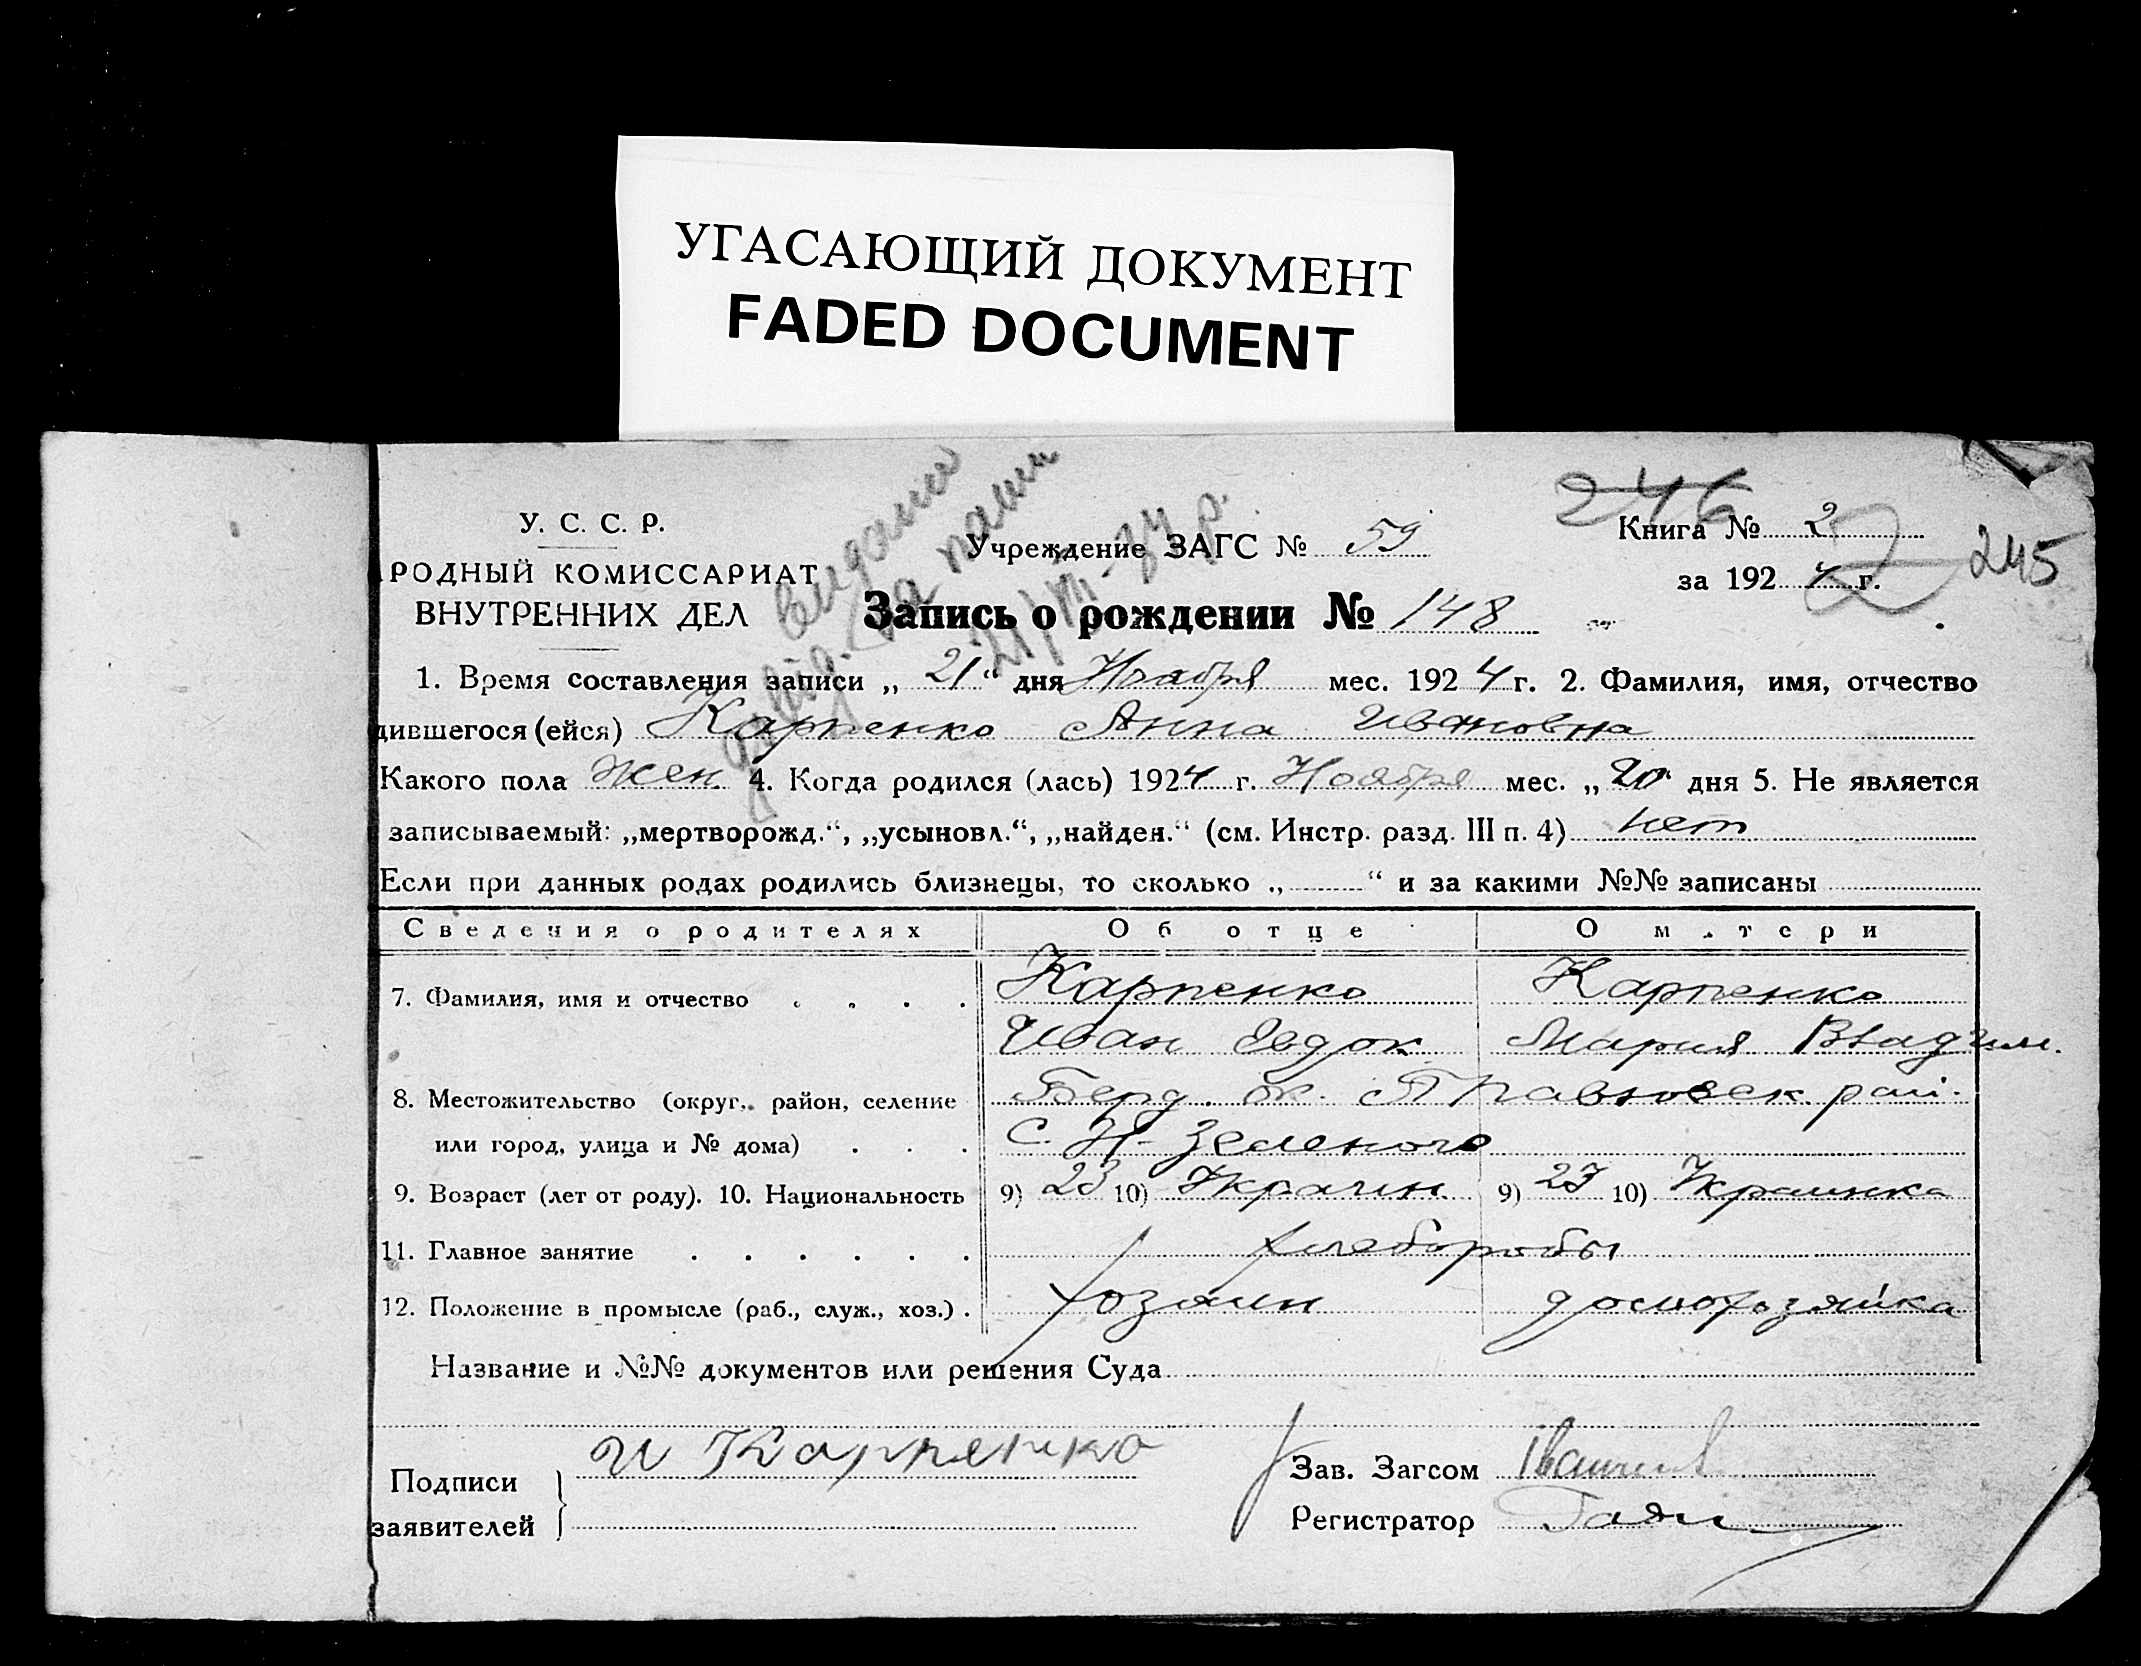 УГАСАЮЩИЙ ДОКУМЕНТ
FADED DOCUMENT
246
У. С. С. Р.
Учреждение ЗАГС № 59
Книга № 2
РОДНЫЙ КОМИССАРИАТ
за 1924 г.
245
ВНУТРЕННИХ ДЕЛ
Запись о рождении № 148
видано
на паши
34 р.
1. Время составления записи „ 21 “ дня Ноября мес. 1924 г. 2. Фамилия, имя, отчество
дившегося (ейся) Карпенко Анна Ивановна
Какого пола жен. 4. Когда родился (лась) 1924 г. Ноября мес. „ 20 дня 5. Не является
записываемый: „мертворожд.“, „усыновл.“, „найден.“ (см. Инстр. разд. III п. 4) нет
Если при данных родах родились близнецы, то сколько „ “ и за какими №№ записаны
Сведения о родителях Об отце О матери
7. Фамилия, имя и отчество Карпенко Карпенко
Иван Евдок Мария Владим.
8. Местожительство (округ, район, селение Берд. ок. рай.
или город, улица и № дома) С. Н-Зеленого
9. Возраст (лет от роду). 10. Национальность 9) 23 10) Украин 9) 23 10) Украинка
11. Главное занятие хлеборобы
12. Положение в промысле (раб., служ., хоз.) хозяин домохозяйка
Название и №№ документов или решения Суда
Подписи И Карпенко
заявителей
Зав. Загсом
Регистратор